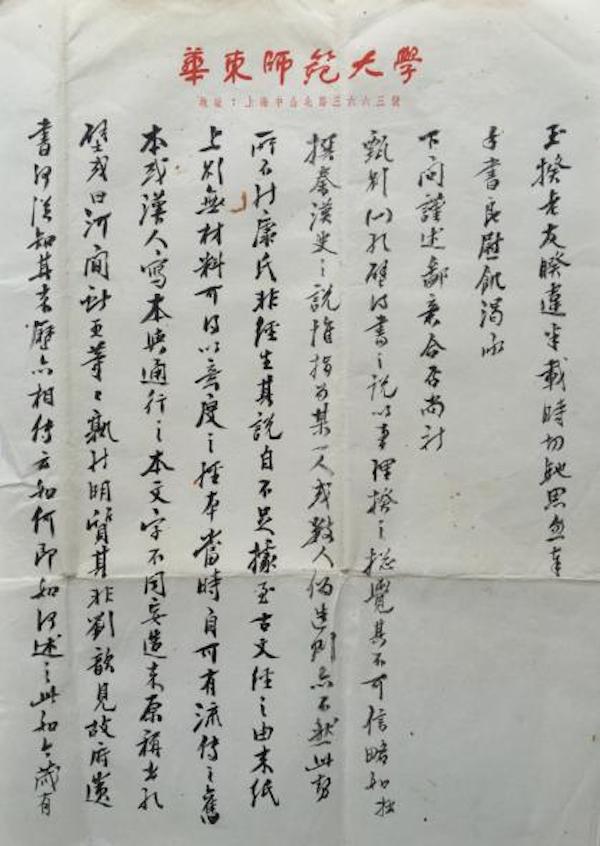 華東師範大學
地址:上海中山北路三六六三號
玉揆老友睽違半載時切馳思忽奉
手書良慰飢渴承
下問謹述鄙意合否尚祈
甄別 孔壁得書之說以事理揆之總覺其不可信略如拙
撰秦漢史之說惟指為某一人或數人偽造則亦不然此
所不然康氏非經生其說自不足據至古文經之由來紙
上別無材料可得以意度之經本當時自可有流傳之舊
本或漢人寫本與通行之本文字不同妄造來原稱出孔
壁或曰河間 更等之 明質其非劉歆見故府遺
書 知其來歷亦相傳云如何即如 述之此如今歲有